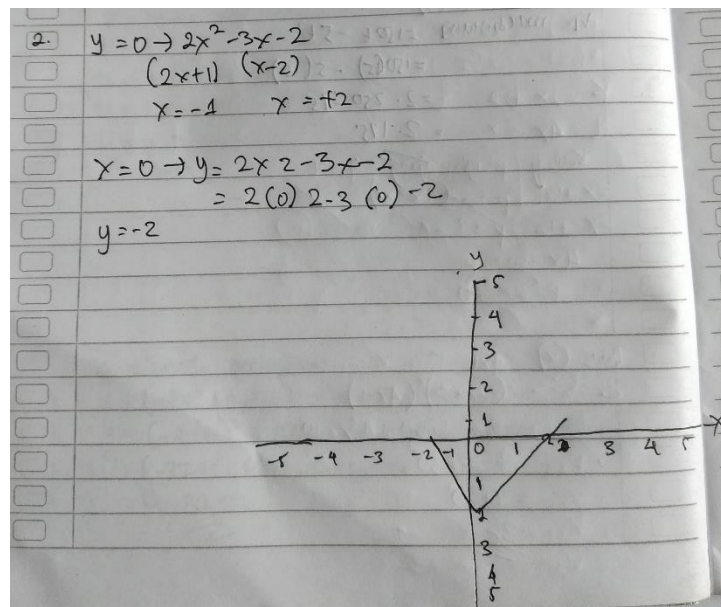 2. y = 0 → 2x² - 3x - 2
(2x+1) (x-2)
x = -1 x = +2
x = 0 → y = 2x2 - 3x - 2
= 2(0) 2 - 3 (0) - 2
y = -2
y
5
4
3
2
1
x
-5 -4 -3 -2 -1 0 1 2 3 4 5
1
2
3
4
5